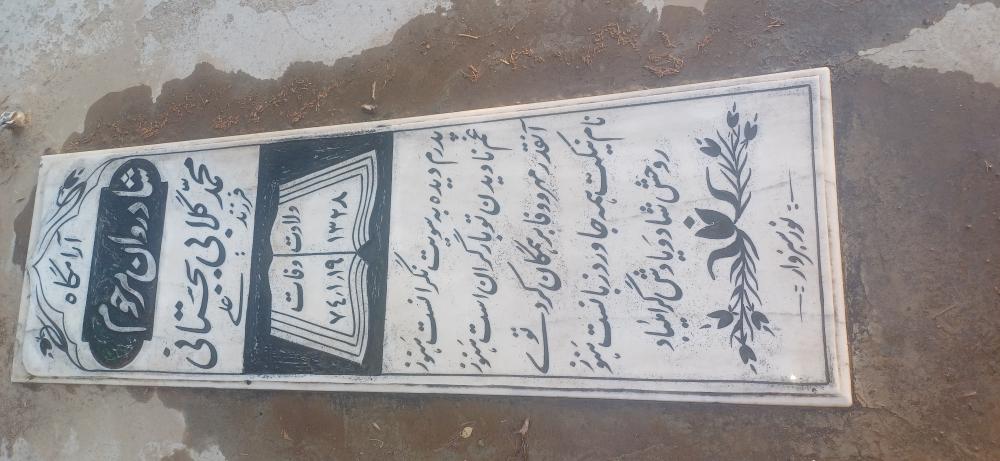 آرامگاه
شادروان مرحوم
محمد گلابی بجستانی
فرزند: علی
ولادت ۱۳۲۸
وفات ۷۴،۱،۱۹
پدرم دیده به سویت نگرانست هنوز
غم نادیدن تو بار گرانست هنوز
آنقدر مهر و وفا بر همگان کردی تو
نام نیکت همه جا ورد زبانست هنوز
روحش شاد و یادش گرامیباد